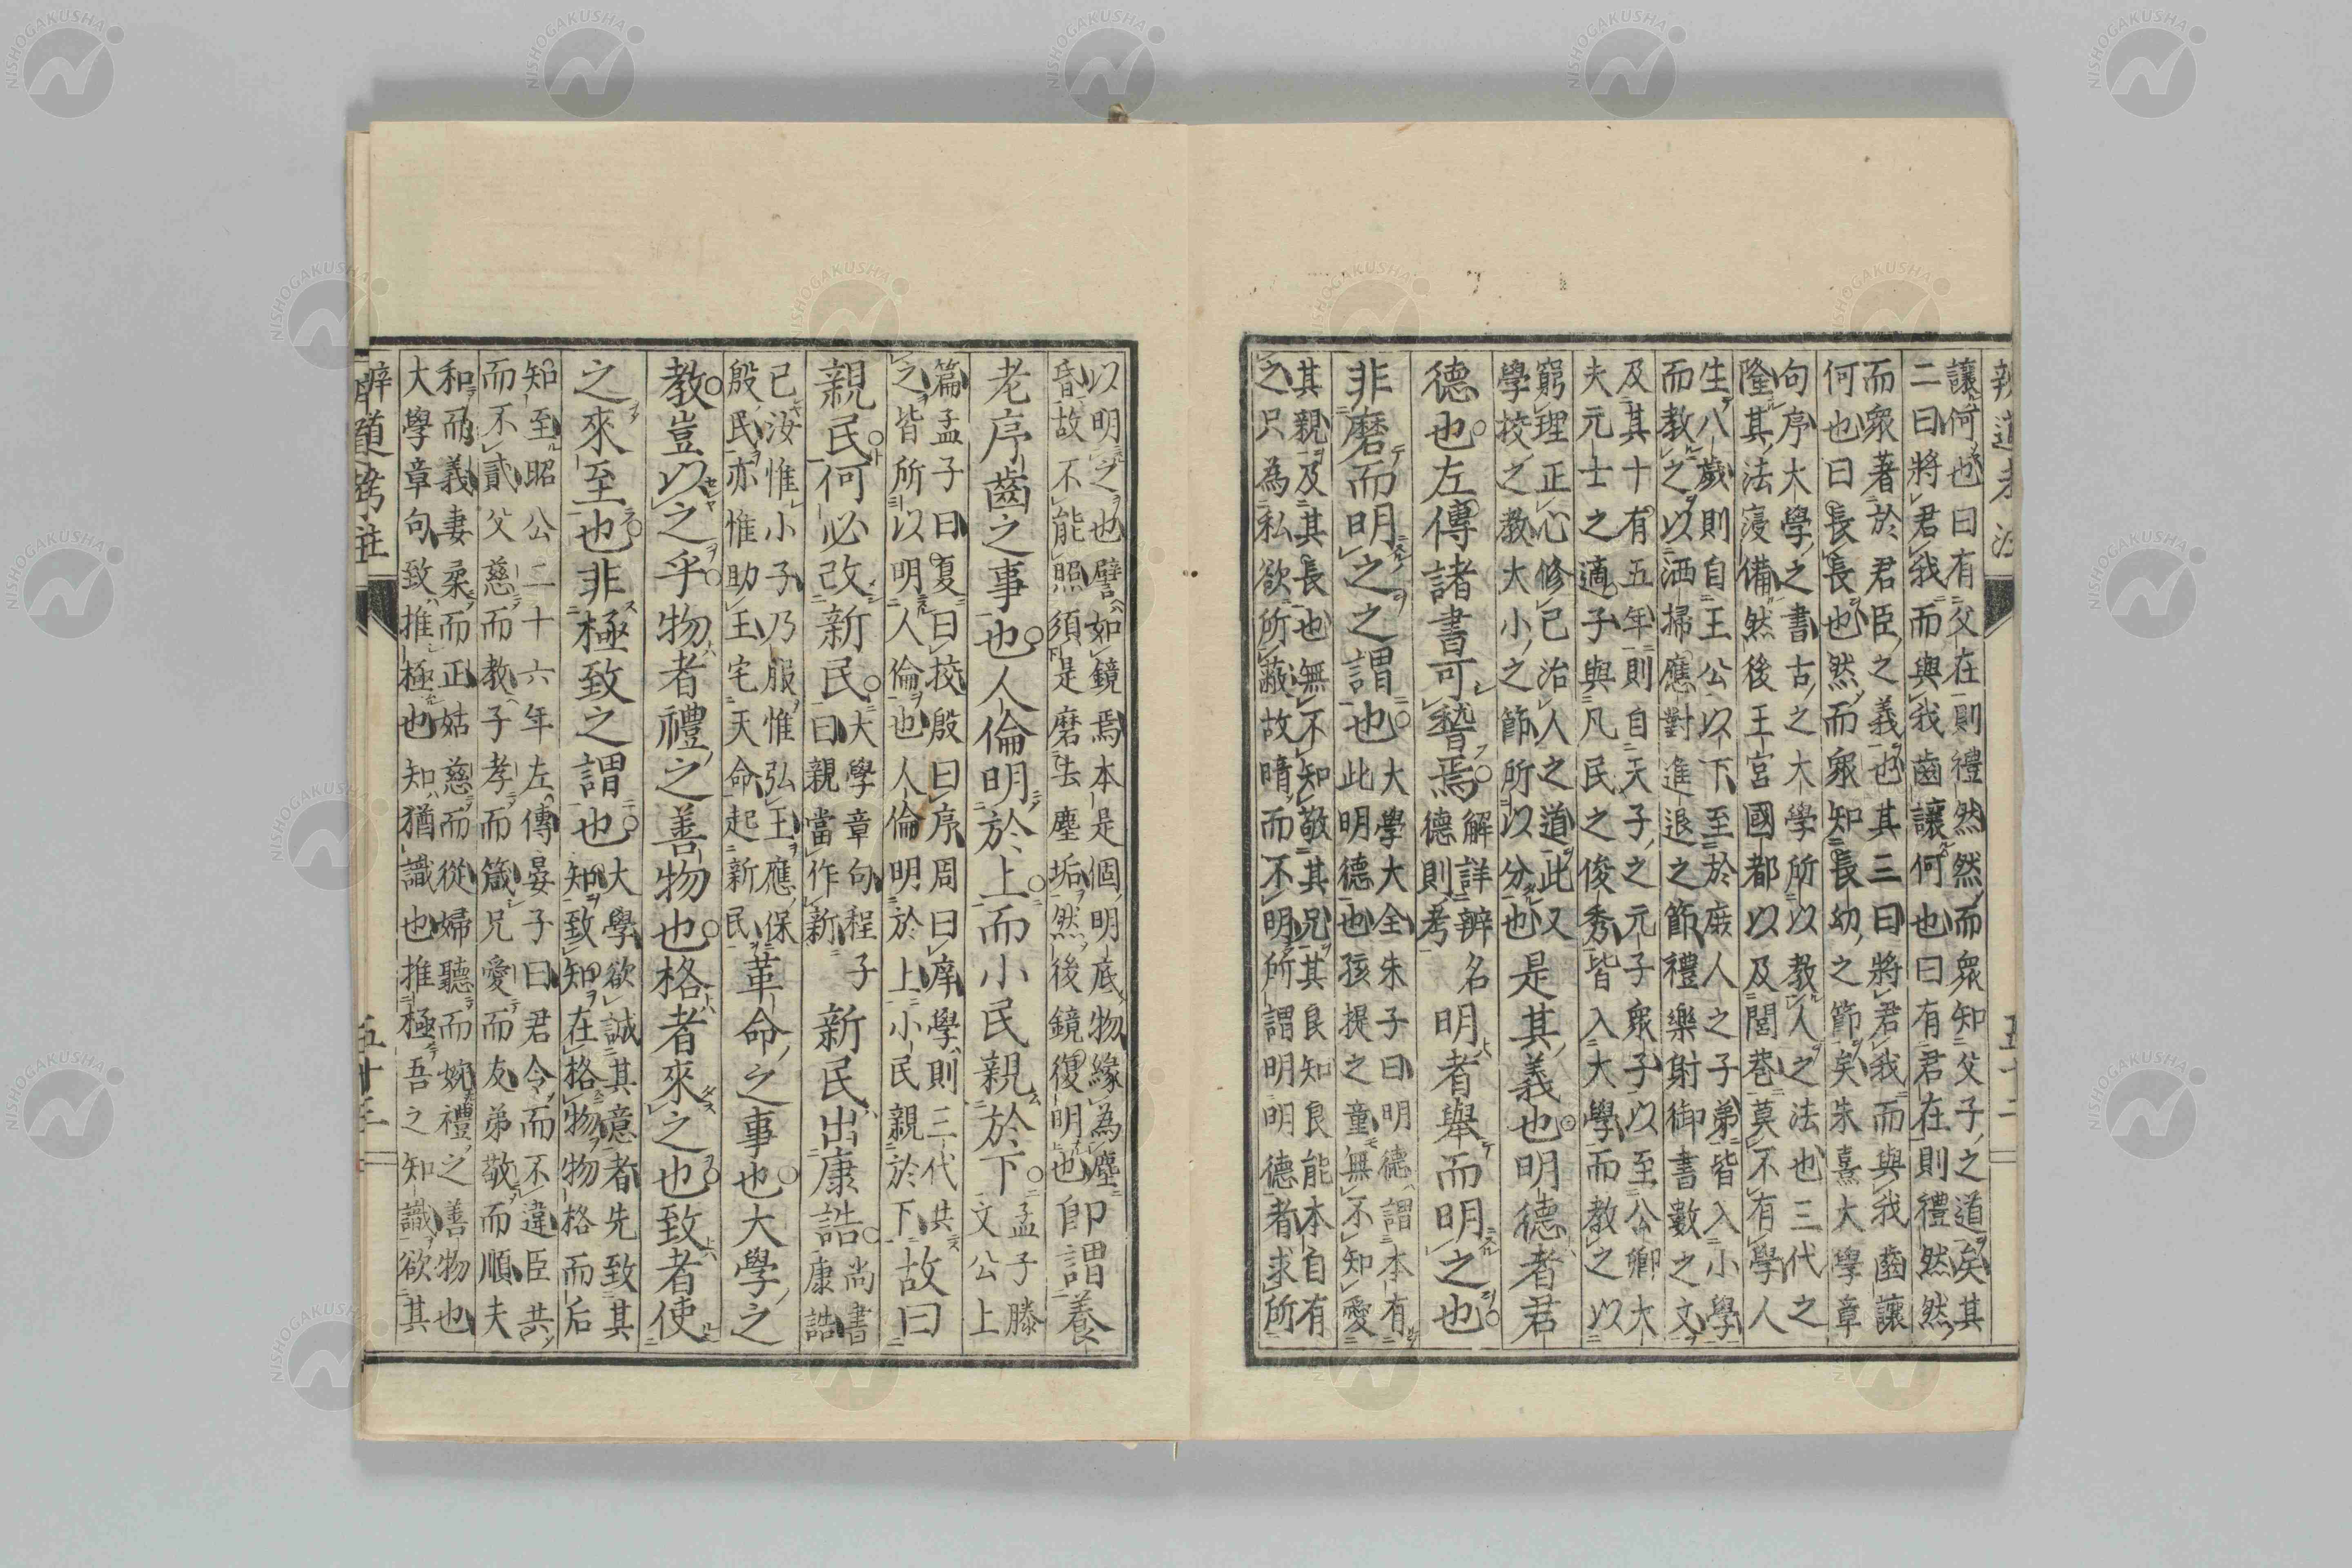 辨道考注 五十二
讓何也曰有父在則禮然然而衆知父子之道矣其
二曰將君我而與我齒讓何也曰有君在則禮然然
而衆著於君臣之義也其三曰將君我而與我齒讓
何也曰長長也然而衆知長幼之節矣朱熹大學章
句序大學之書古之大學所以教人之法也三代之
隆其法寖備然後王宮國都以及閭巷莫不有學人
生八歲則自王公以下至於庶人之子弟皆入小學
而教之以洒掃應對進退之節禮樂射御書數之文
及其十有五年則自天子之元子衆子以至公卿大
夫元士之適子與凡民之俊秀皆入大學而教之以
窮理正心修己治人之道此又
學挍之教大小之節所以分也
是其義也明德者君
德也左傳諸書可稽焉
解詳辨名
德則考
明者舉而明之也
非磨而明之之謂也
大學大全朱子曰明德謂本有
此明德也孩提之童無不知愛
其親及其長也無不知敬其兄其良知良能本自有
之只為私欲所蔽故暗而不明所謂明明德者求所
以明之也譬如鏡焉本是個明底物緣為塵
昏故不能照須是磨去塵垢然後鏡復明也
即謂養
老序齒之事也人倫明於上而小民親於下
孟子滕
文公上
篇孟子曰夏曰挍殷曰序周曰庠學則三代共
之皆所以明人倫也人倫明於上小民親於下
故曰
親民何必改新民
大學章句程子
曰親當作新
新民出康誥
尚書
康誥
已汝惟小子乃服惟弘王應保
殷民亦惟助王宅天命起新民
革命之事也大學之
教豈以之乎物者禮之善物也格者來之也致者使
之來至也非極致之謂也
大學欲誠其意者先致其
知致知在格物物格而后
知至昭公二十六年左傳晏子曰君令而不違臣共
而不貳父慈而教子孝而箴兄愛而友弟敬而順夫
和而義妻柔而正姑慈而從婦聽而婉禮之善物也
大學章句致推極也知猶識也推極吾之知識欲其
辨道考注 五十三